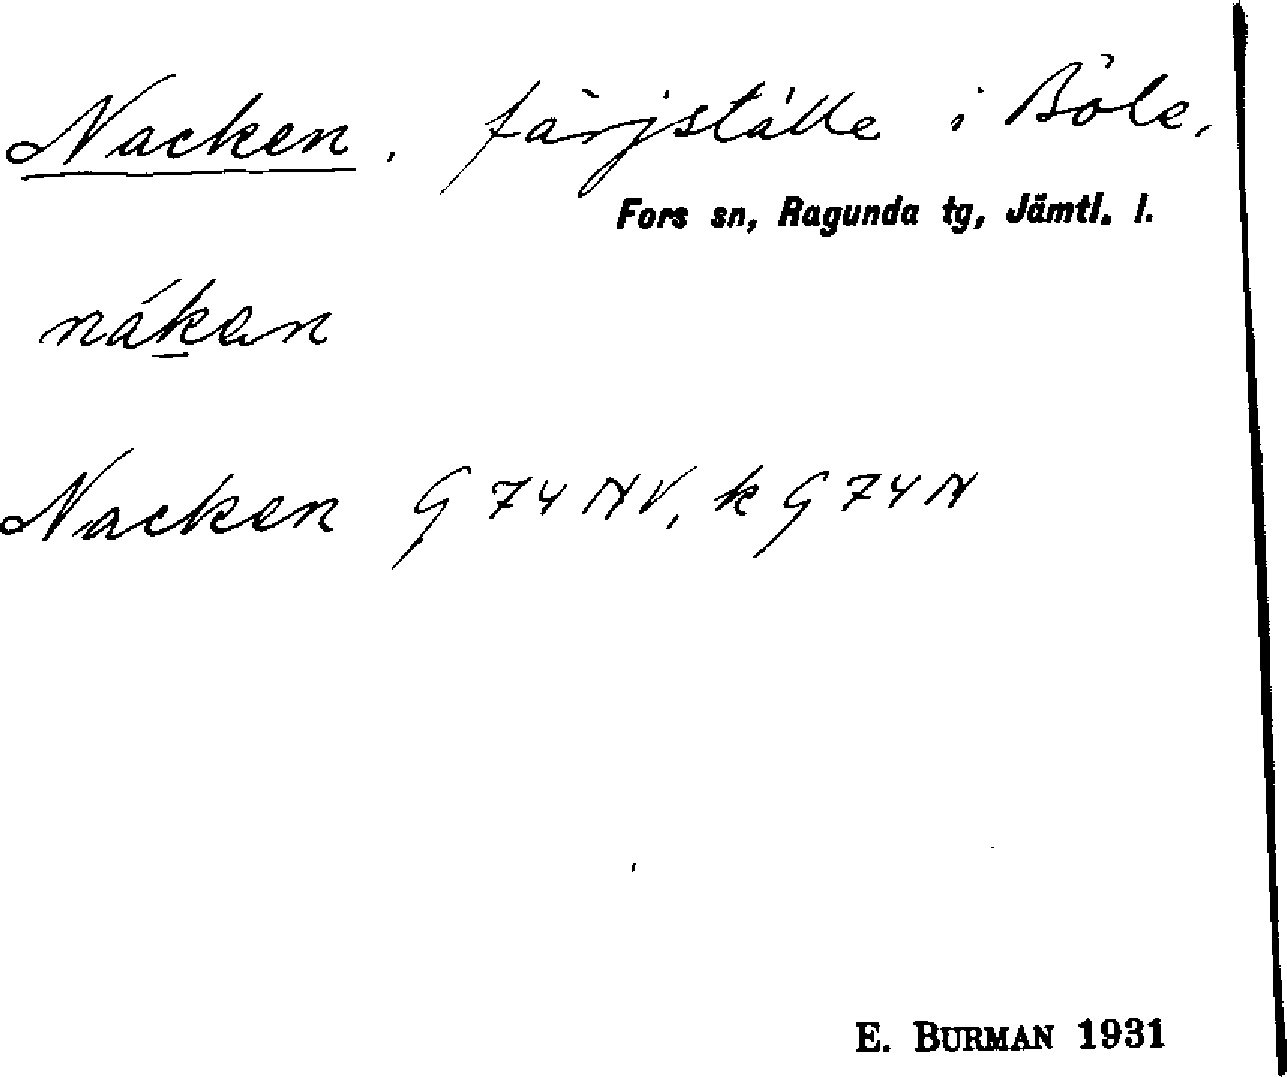 Nacken, färjställe i Böle,
Fors sn, Ragunda tg, Jämtl. l.
nák̲an
Nacken G 74 NV, k G 74 N
E. BURMAN 1931